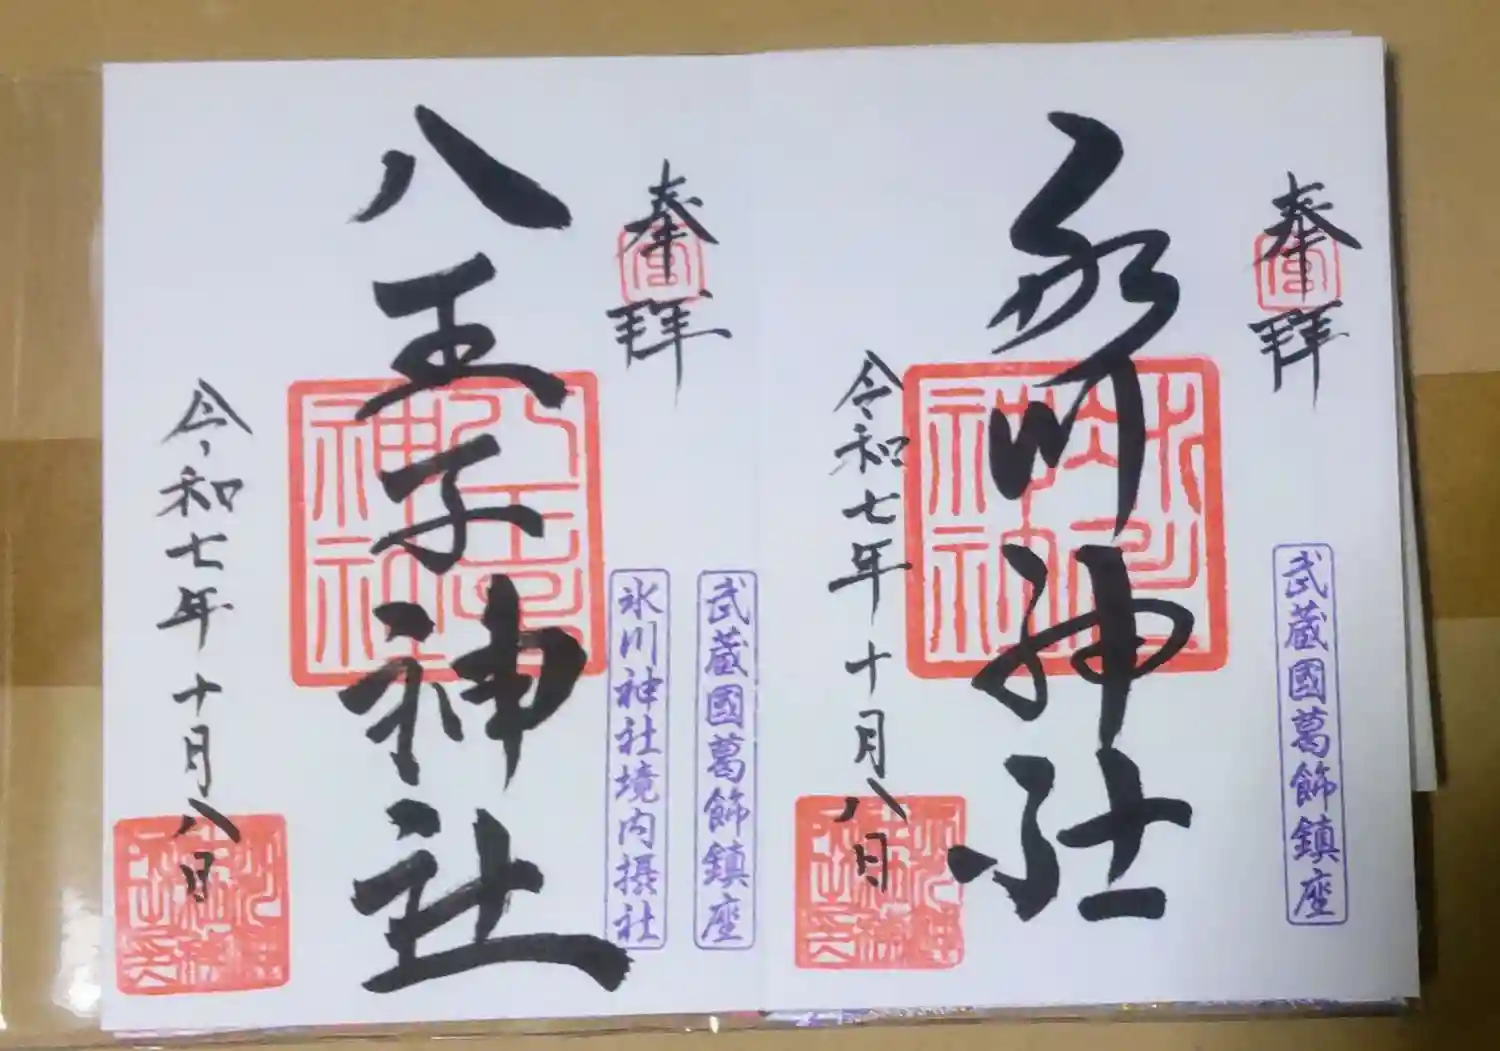 奉拝
武蔵國葛飾鎮座
氷川神社
令和七年十月八日
奉拝
武蔵國葛飾鎮座
氷川神社境内摂社
八王子神社
八王子神社
令和七年十月八日